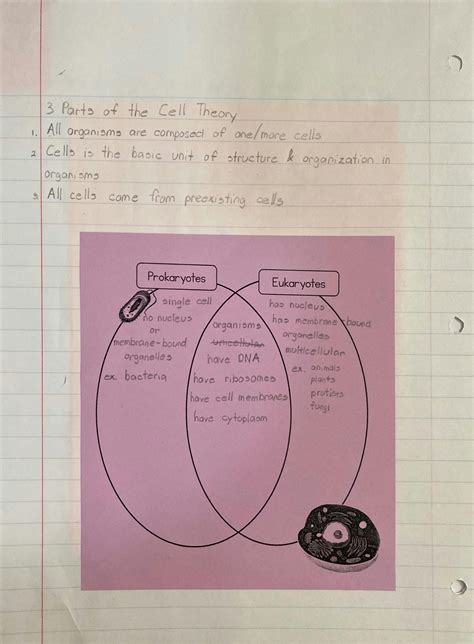 3 Parts of the Cell Theory
1. All organisms are composed of one/more cells
2. Cells is the basic unit of structure & organization in
organisms
3. All cells come from preexisting cells
Prokaryotes
single cell
no nucleus
or
membrane-bound
organelles
ex. bacteria
organisms
unicellular
have DNA
have ribosomes
have cell membranes
have cytoplasm
Eukaryotes
has nucleus
has membrane-bound
organelles
multicellular
ex. animals
plants
protists
fungi